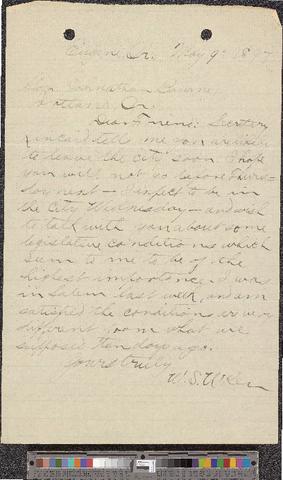 Eugene, Or. May 9th 1897
Hon. Jonathan Bourne,
Portland, Or.
Dear Friend: Secretary
Kincaid tells me you are likely
to leave the city soon. I hope
you will not go before Thurs-
day next - I expect to be in
the City Wednesday - and wish
to talk with you about some
legislative conditions which
seem to me to be of the
highest importance. I was
in Salem last week, and am
satisfied the condition is very
different from what we
supposed ten days ago.
Yours truly
W. S. U'Ren